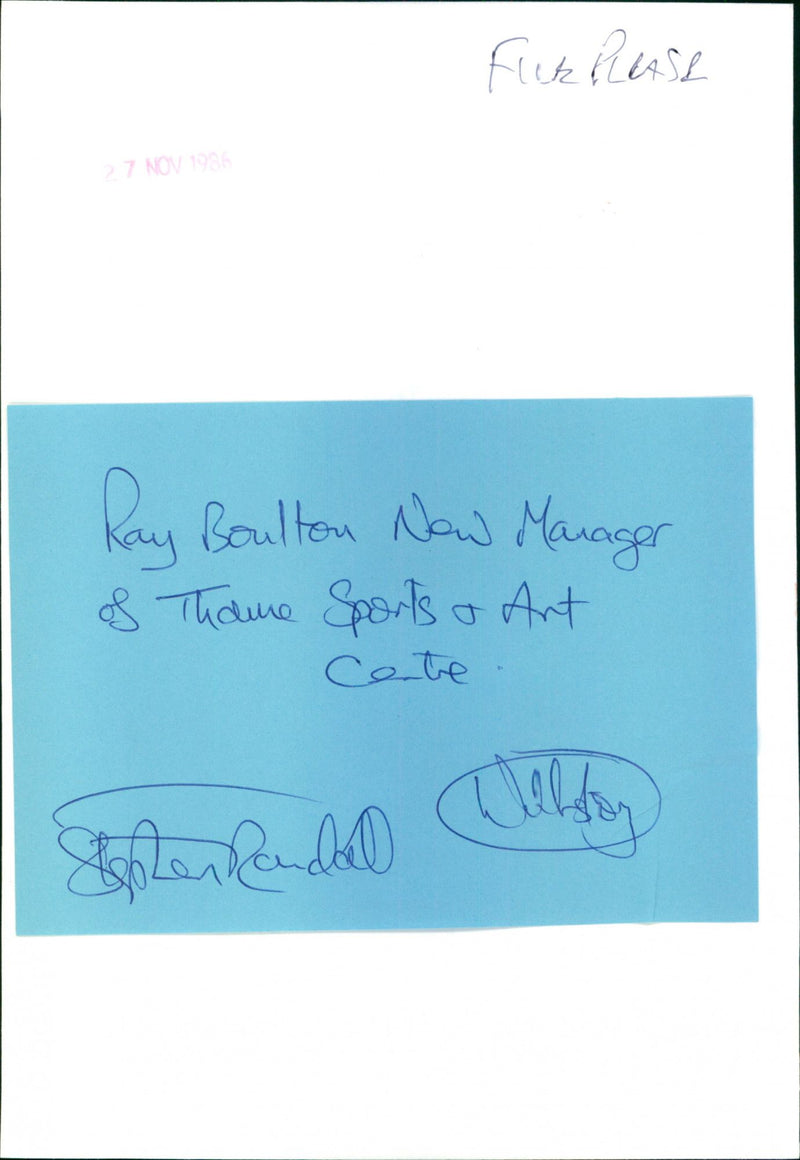 FILE PLEASE
27 NOV 1986
Ray Boulton New Manager
of Thame Sports & Art
Centre.
Stephen Randall